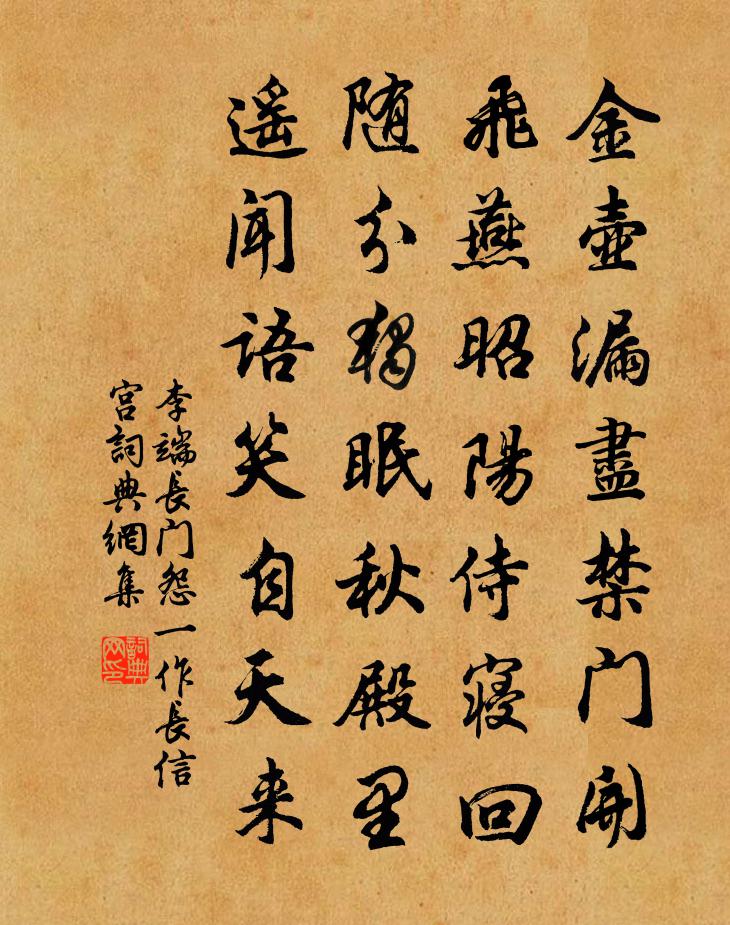 金壺漏盡禁门開
飛燕昭陽侍寢回
随分獨眠秋殿里
遥闻語笑自天来
李端長门怨一作長信
宫詞典網集
詞典网印